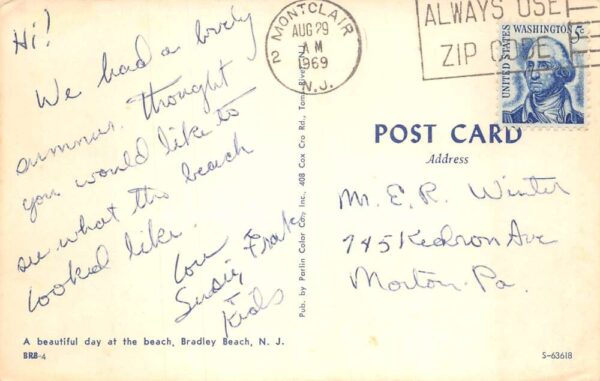 Hi!
We had a lovely
summer. Thought
you would like to
see what the beach
looked like.
Love
Susie, Frank
Kids
A beautiful day at the beach, Bradley Beach, N. J.
BRB-4
Pub. by Parlin Color Co., Inc., 408 Cox Cro Rd., Toms River, N.J.
MONTCLAIR
2
AUG 29
AM
1969
N.J.
ALWAYS USE
ZIP CODE
UNITED STATES
WASHINGTON 5c
POST CARD
Address
Mr. E. R. Winter
745 Kedron Ave
Morton. Pa.
S-63618